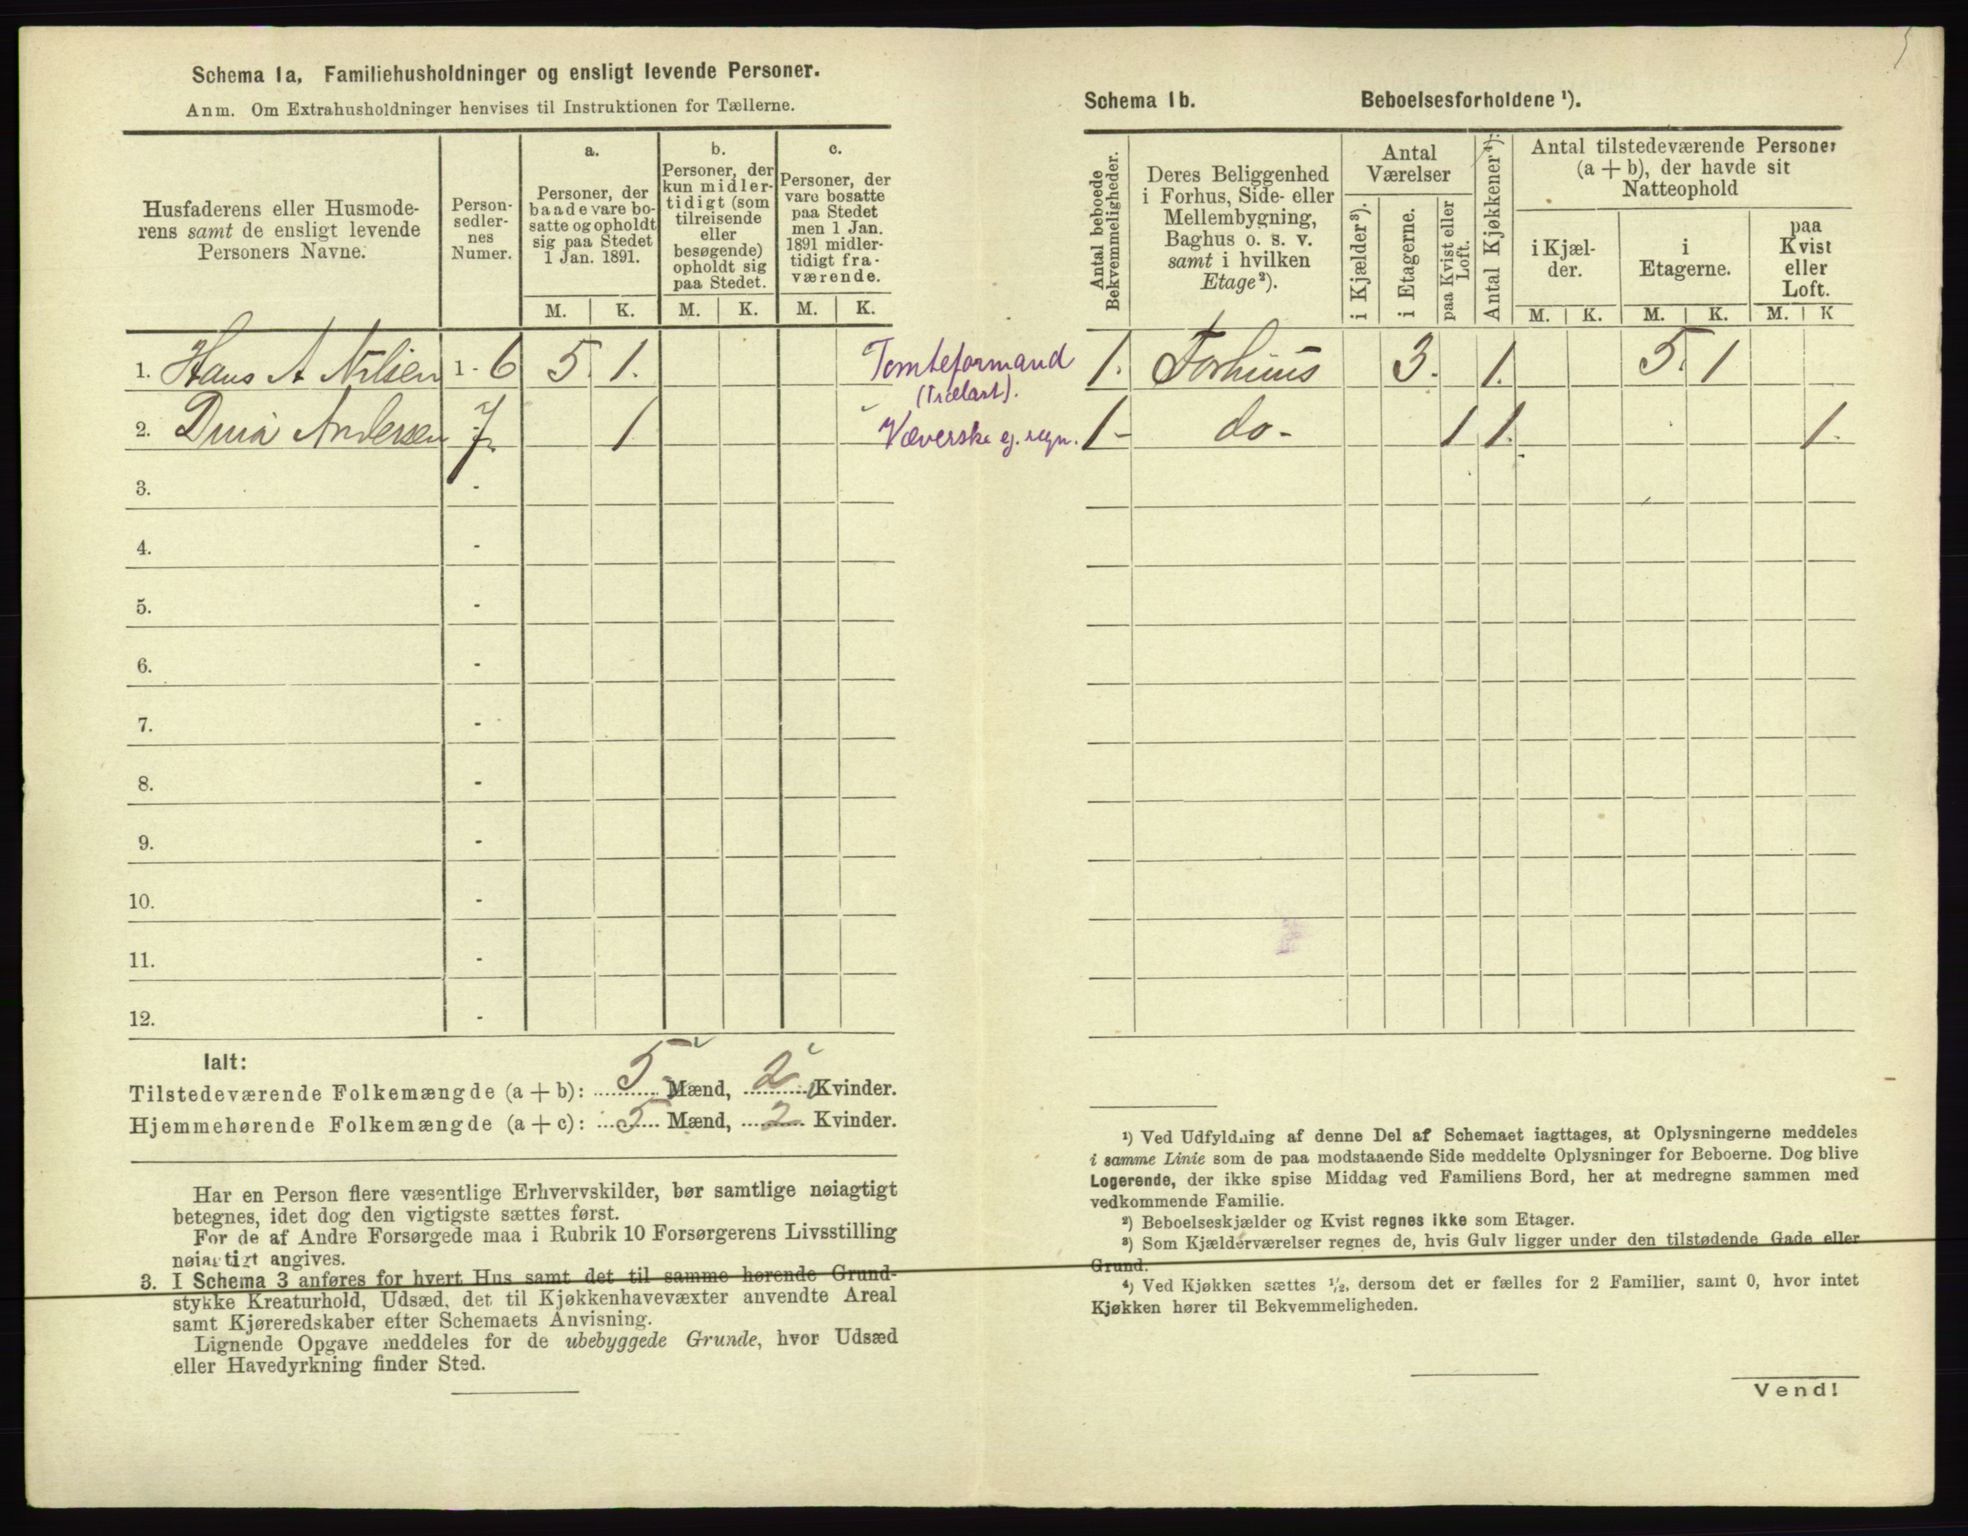 Schema 1a. Familiehusholdninger og ensligt levende Personer.
Anm. Om Extrahusholdninger henvises til Instruktionen for Tællerne.
Husfaderens eller Husmode-
rens samt de ensligt levende
Personers Navne.
Person-
sedler-
nes
Numer.
a.
Personer, der
baade vare bo-
satte og opholdt
sig paa Stedet
1 Jan. 1891.
b.
Personer, der
kun midler-
tidigt (som
tilreisende
eller
besøgende)
opholdt sig
paa Stedet.
c.
Personer, der
vare bosatte
paa Stedet
men 1 Jan.
1891 midler-
tidigt fra-
værende.
M. K. M. K. M. K.
1. Hans A Nilsen 1 - 6 5. 1. Tomteformand
(Trælast).
2. Dina Andersen 7 1 Væverske eg. regn.
3. -
4. -
5. -
6. -
7. -
8. -
9. -
10. -
11. -
12. -
Ialt:
Tilstedeværende Folkemængde (a + b): 5 Mænd, 2 Kvinder.
Hjemmehørende Folkemængde (a + c): 5 Mænd, 2 Kvinder.
Har en Person flere væsentlige Erhvervskilder, bør samtlige nøiagtigt
betegnes, idet dog den vigtigste sættes først.
For de af Andre Forsørgede maa i Rubrik 10 Forsørgerens Livsstilling
nøiagtigt angives.
3. I Schema 3 anføres for hvert Hus samt det til samme hørende Grund-
stykke Kreaturhold, Udsæd, det til Kjøkkenhavevæxter anvendte Areal
samt Kjøreredskaber efter Schemaets Anvisning.
Lignende Opgave meddeles for de ubebyggede Grunde, hvor Udsæd
eller Havedyrkning finder Sted.
Schema 1b. Beboelsesforholdene ¹).
Antal beboede
Bekvemmeligheder.
Deres Beliggenhed
i Forhus, Side- eller
Mellembygning,
Baghus o. s. v.
samt i hvilken
Etage²).
Antal
Værelser
i Kjælder³).
i Etagerne.
paa Kvist eller
Loft.
Antal Kjøkkener⁴).
Antal tilstedeværende Personer
(a + b), der havde sit
Natteophold
i Kjæl-
der.
i
Etagerne.
paa
Kvist
eller
Loft.
M. K. M. K. M. K
1. Forhuus 3. 1. 5. 1
1 - do - 1 1. 1.
¹) Ved Udfyldning af denne Del af Schemaet iagttages, at Oplysningerne meddeles
i samme Linie som de paa modstaaende Side meddelte Oplysninger for Beboerne. Dog blive
Logerende, der ikke spise Middag ved Familiens Bord, her at medregne sammen med
vedkommende Familie.
²) Beboelseskjælder og Kvist regnes ikke som Etager.
³) Som Kjælderværelser regnes de, hvis Gulv ligger under den tilstødende Gade eller
Grund.
⁴) Ved Kjøkken sættes ½, dersom det er fælles for 2 Familier, samt 0, hvor intet
Kjøkken hører til Bekvemmeligheden.
Vend!